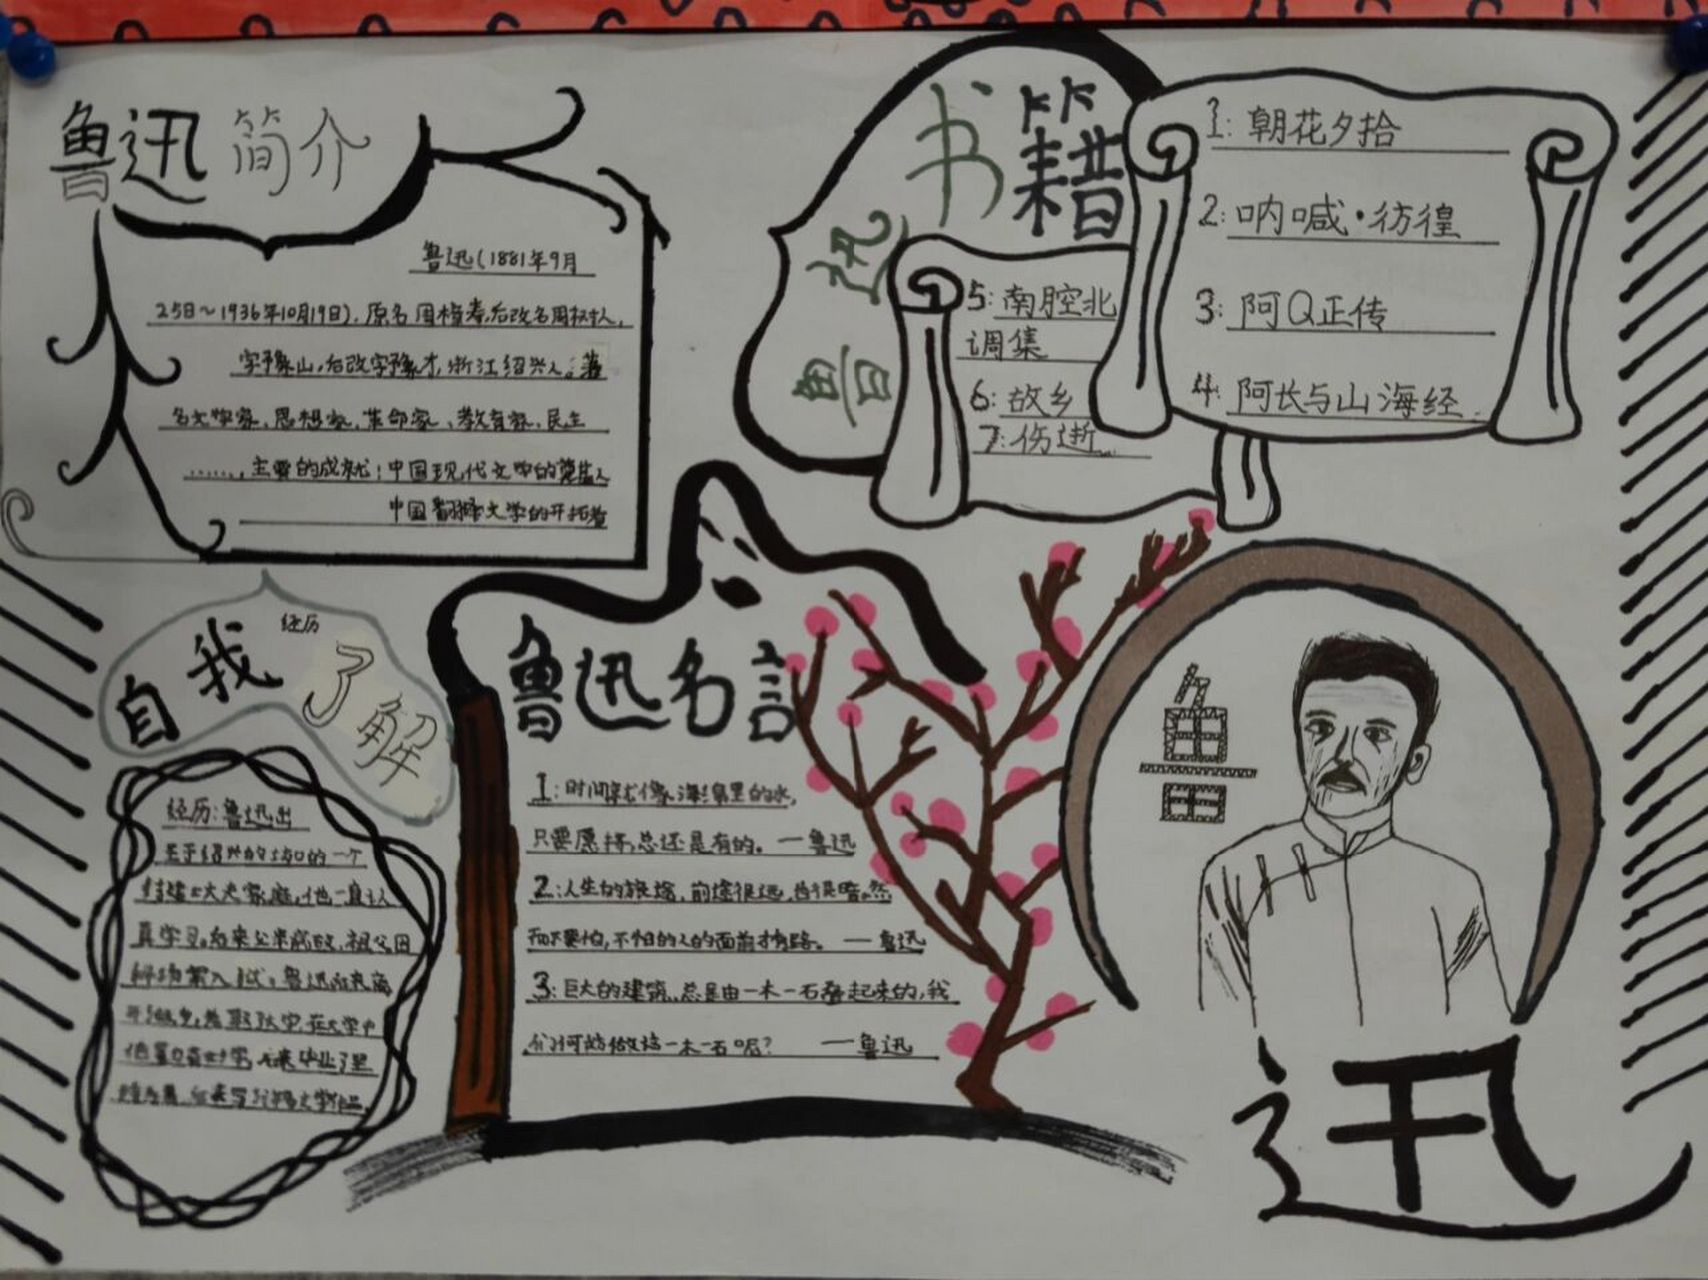 鲁迅简介
鲁迅(1881年9月
25日~1936年10月19日),原名周樟寿,后改名周树人,
字豫山,后改字豫才,浙江绍兴人。著
名文学家、思想家、革命家、教育家、民主
……,主要的成就:中国现代文学的奠基人
中国翻译文学的开拓者
鲁迅书籍
1: 朝花夕拾
2: 呐喊·彷徨
3: 阿Q正传
4: 阿长与山海经
5: 南腔北
调集
6: 故乡
7: 伤逝
自我了解
经历
经历:鲁迅出
生于绍兴的 的一个
封建士大夫家庭,他一直认
真学习。后来父亲 ,祖父因
科场案入狱。鲁迅
在大学中
鲁迅名言
1:时间就像海绵里的水,
只要愿挤,总还是有的。—鲁迅
2:人生的旅途,前途很远,也很暗。然
而不要怕,不怕的人的面前才有路。—鲁迅
3:巨大的建筑,总是由一木一石叠起来的,我
们何妨做这一木一石呢? —鲁迅
鲁
迅